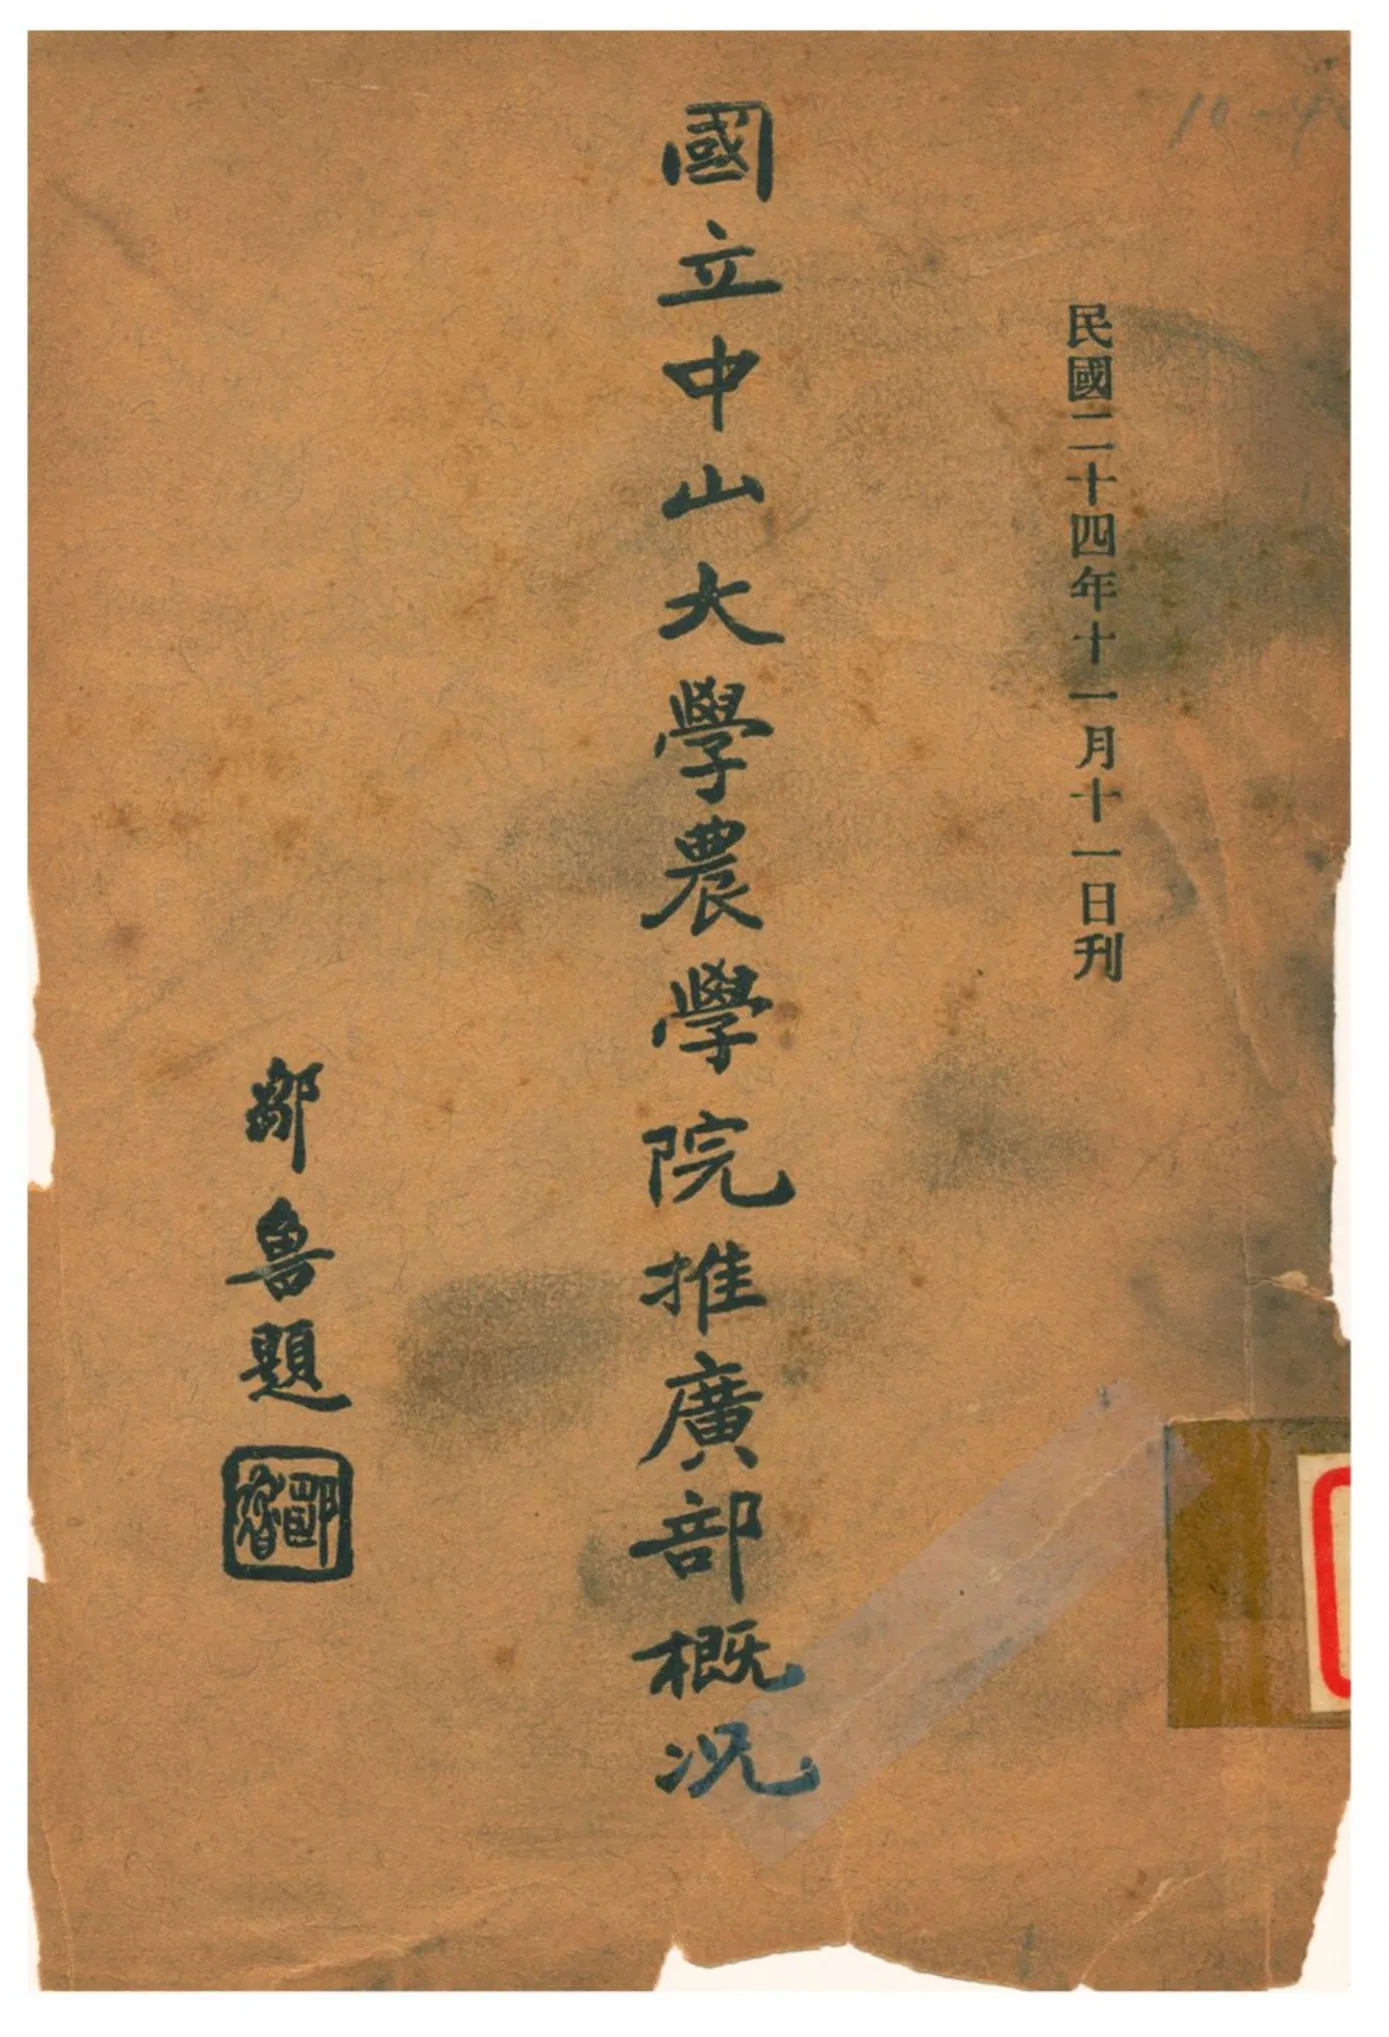 民國二十四年十一月十一日刊
國立中山大學農學院推廣部概况
鄒魯題
鄒魯